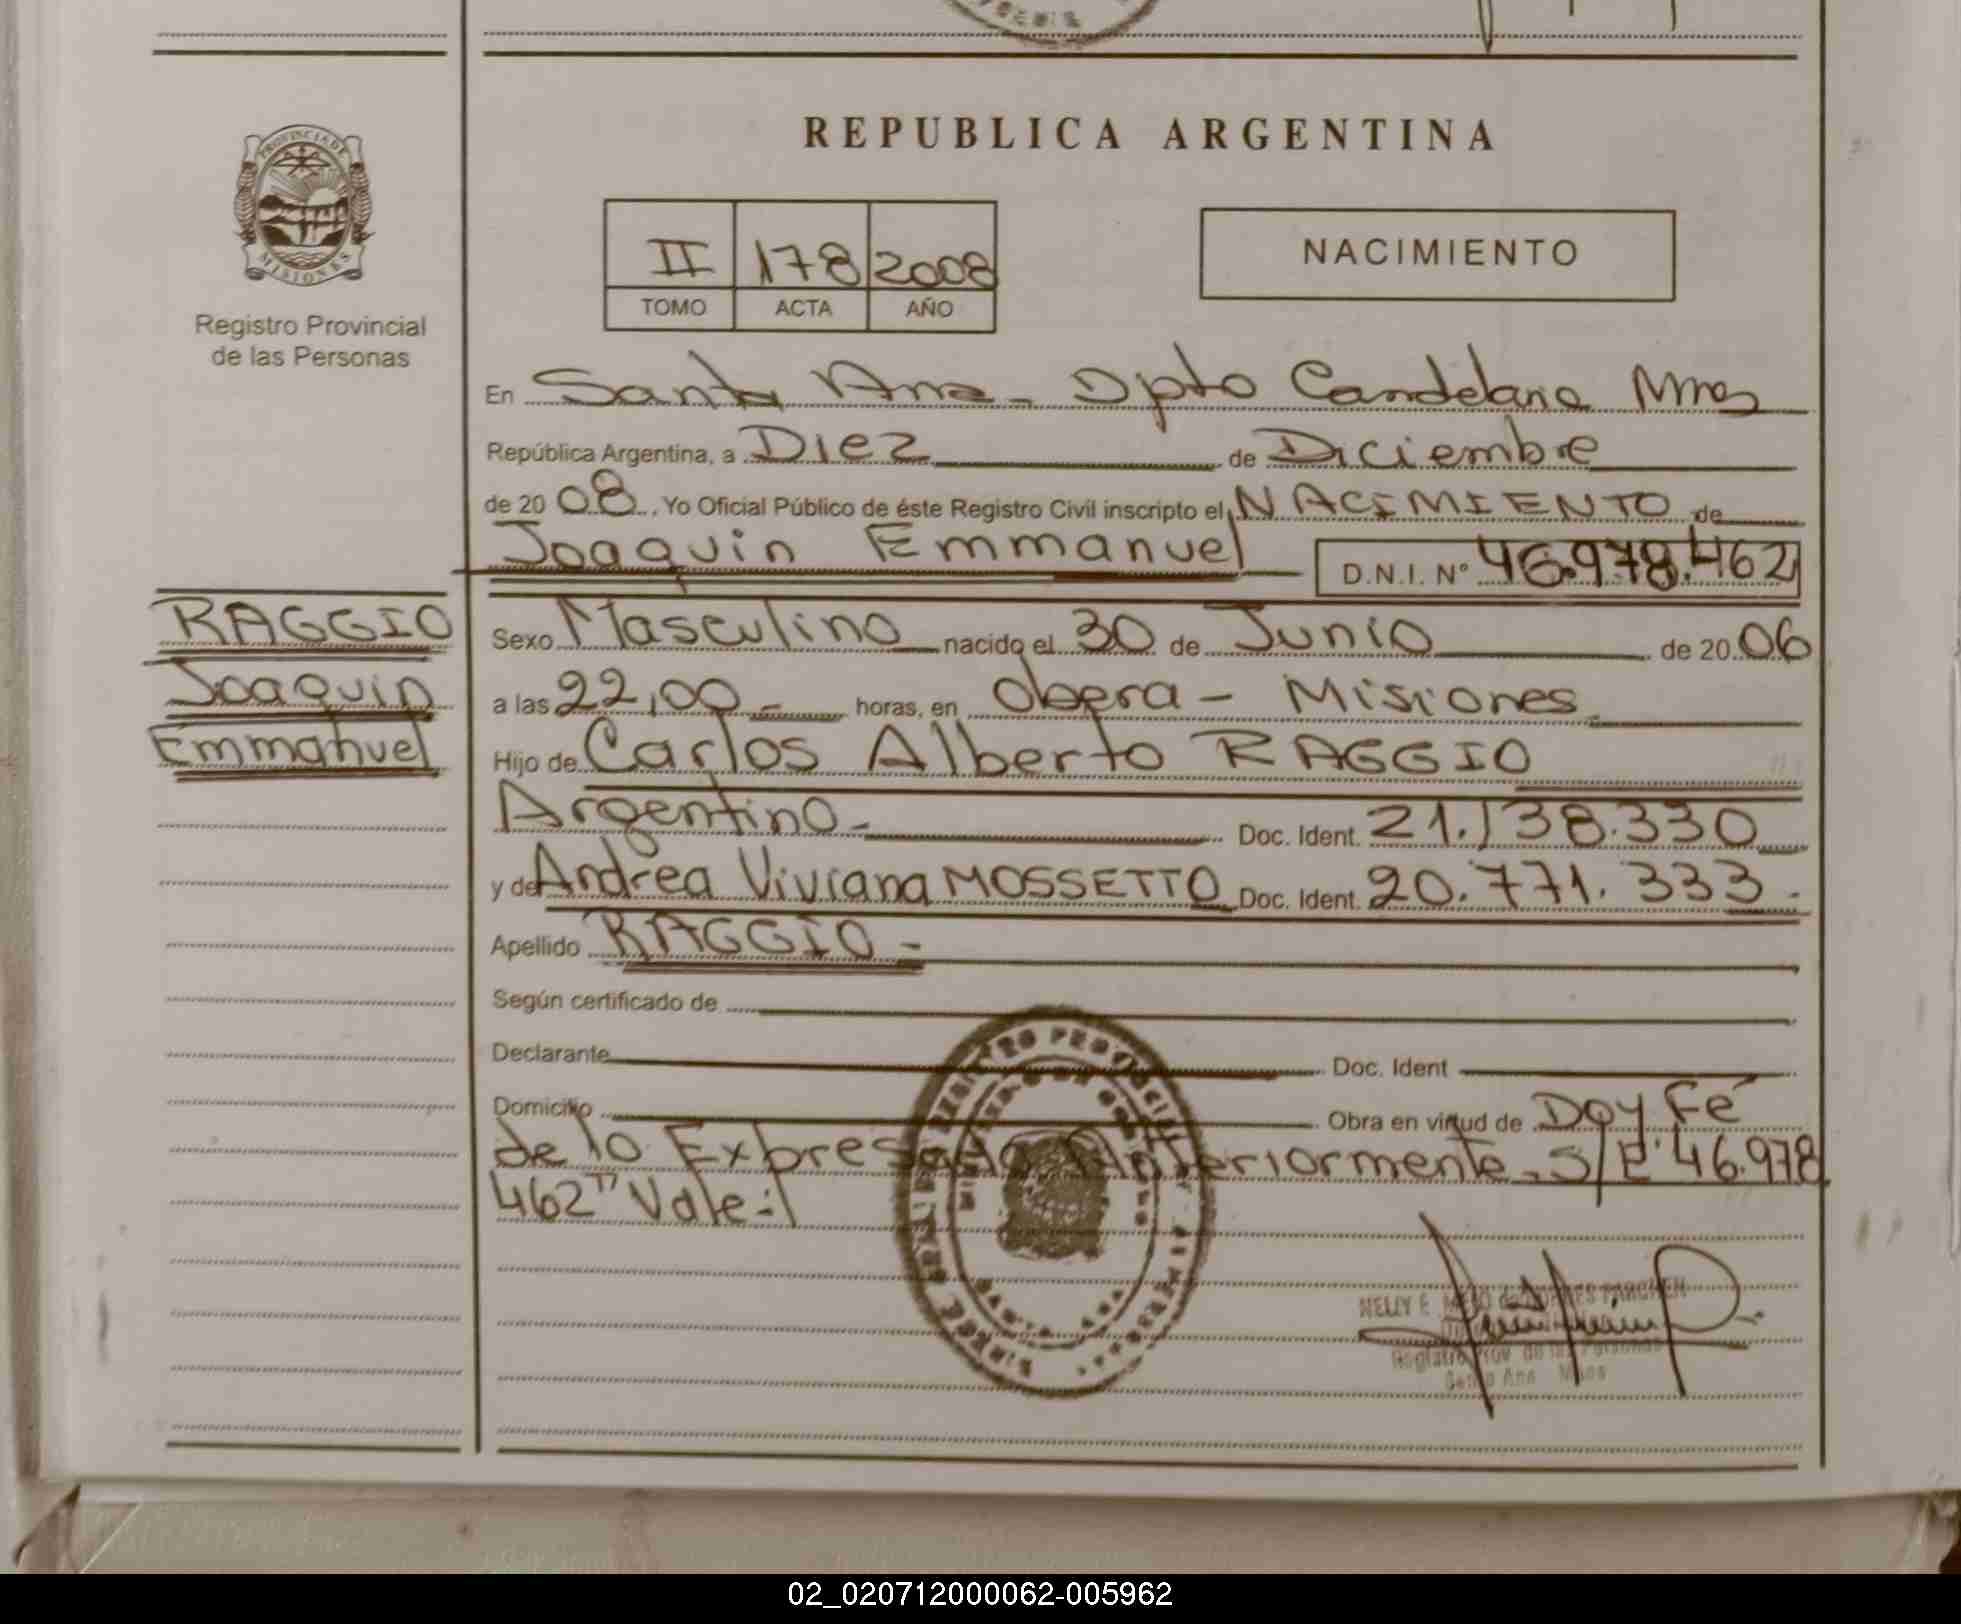 REPUBLICA ARGENTINA
PROVINCIA DE
MISIONES
Registro Provincial
de las Personas
II 178 2008
TOMO ACTA AÑO
NACIMIENTO
En Santa Ana - Dpto Candelaria Mnes
República Argentina, a Diez de Diciembre
de 2008. Yo Oficial Público de éste Registro Civil inscripto el NACIMIENTO de
Joaquin Emmanuel D.N.I. Nº 46.978.462
RAGGIO
Joaquin
Emmanuel
Sexo Masculino nacido el 30 de Junio de 2006
a las 22,00 - horas, en Obera - Misiones
Hijo de Carlos Alberto RAGGIO
Argentino - Doc. Ident. 21.138.330
y de Andrea Viviana MOSSETTO Doc. Ident. 20.771.333 -
Apellido RAGGIO -
Según certificado de
Declarante Doc. Ident
Domicilio Obra en virtud de Doy Fé
de lo Expresado Anteriormente. S/E" 46.978
462" Vale:
NELLY E.
Registro Prov. de las Personas
Santa Ana Mnes
02_020712000062-005962